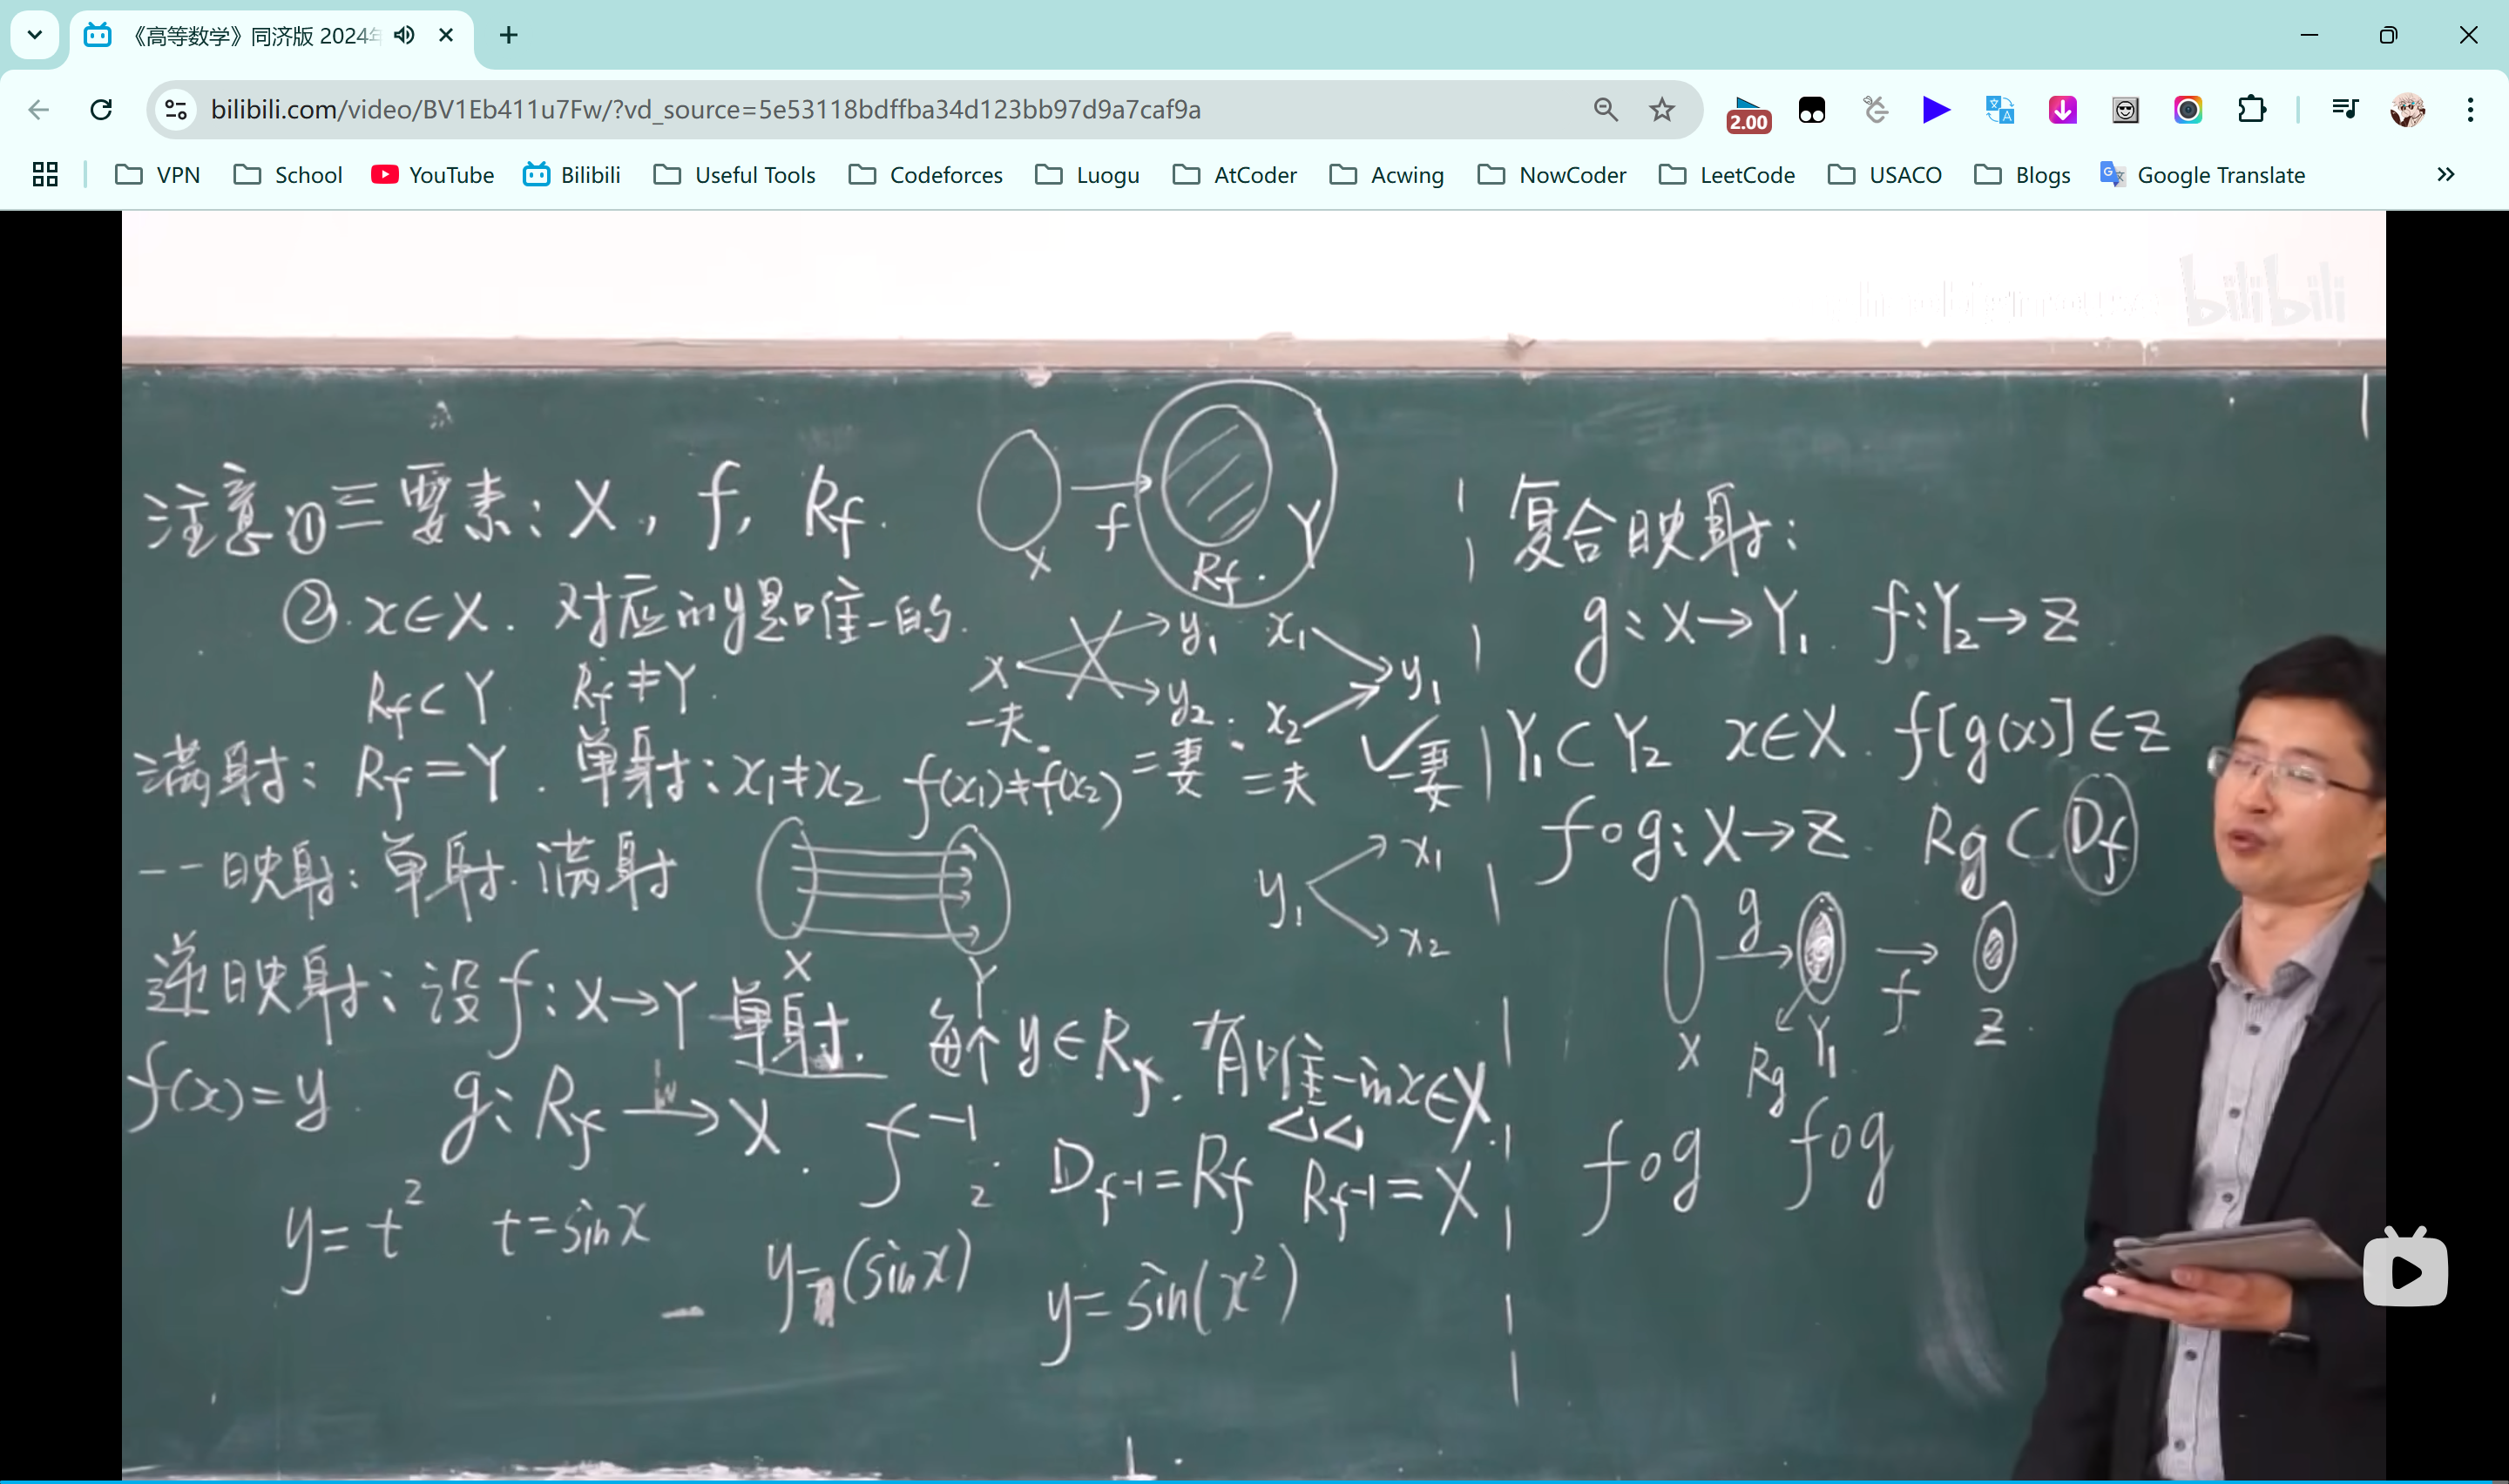 《高等数学》同济版 2024年
bilibili.com/video/BV1Eb411u7Fw/?vd_source=5e53118bdffba34d123bb97d9a7caf9a
2.00
VPN School YouTube Bilibili Useful Tools Codeforces Luogu AtCoder Acwing NowCoder LeetCode USACO Blogs Google Translate
bilibili
注意:①三要素: X, f, Rf.
X f Rf. Y
②. x∈X. 对应的y是唯一的.
Rf⊂Y Rf≠Y.
x y₁ y₂. x₁ x₂ y₁
一夫. 二妻: 二夫 一妻
满射: Rf=Y. 单射: x₁≠x₂ f(x₁)≠f(x₂)
一一映射: 单射. 满射
X Y
y₁ x₁ x₂
逆映射: 设f: X→Y 单射. 每个y∈Rf. 有唯一的x∈X.
f(x)=y. g: Rf→X. f⁻¹: Df⁻¹=Rf Rf⁻¹=X
y=t² t=sinx
y=(sinx)²
y=sin(x²)
复合映射:
g: X→Y₁. f: Y₂→Z
Y₁⊂Y₂ x∈X. f[g(x)]∈Z
f∘g: X→Z. Rg⊂Df
g f
X Rg Y₁ Z.
f∘g f∘g